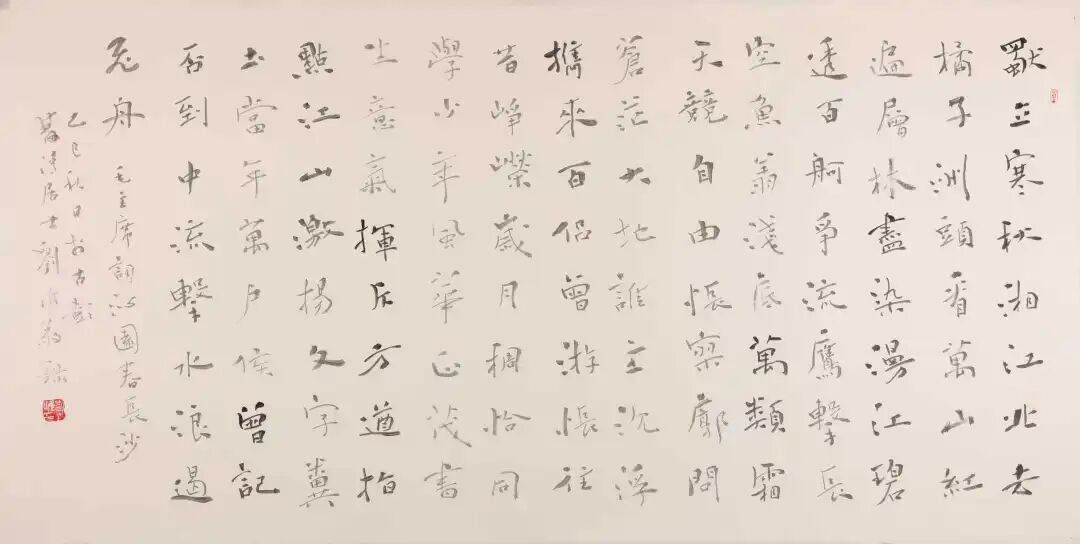 獨立寒秋湘江北去
橘子洲頭看萬山紅
遍層林盡染漫江碧
透百舸爭流鷹擊長
空魚翔淺底萬類霜
天競自由悵寥廓問
蒼茫大地誰主沈浮
攜來百侶曾游悵往
昔崢嶸歲月稠恰同
學少年風華正茂書
生意氣揮斥方遒指
點江山激揚文字糞
土當年萬戶侯曾記
否到中流擊水浪遏
飛舟 毛主席詞沁園春長沙
乙巳秋日於古彭
居士劉